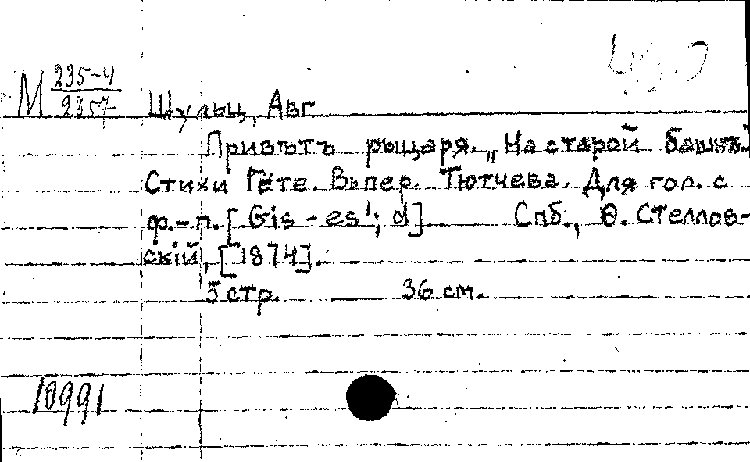 М 235-4/2357 Шульц, Авг
Привѣтъ рыцаря. „На старой башнѣ"
Стихи Гёте. Въ пер. Тютчева. Для гол. с
ф.-п. [Gis - es¹; d]. Спб., Ѳ. Стеллов-
скій, [1874].
5 стр. 36 см.
10991